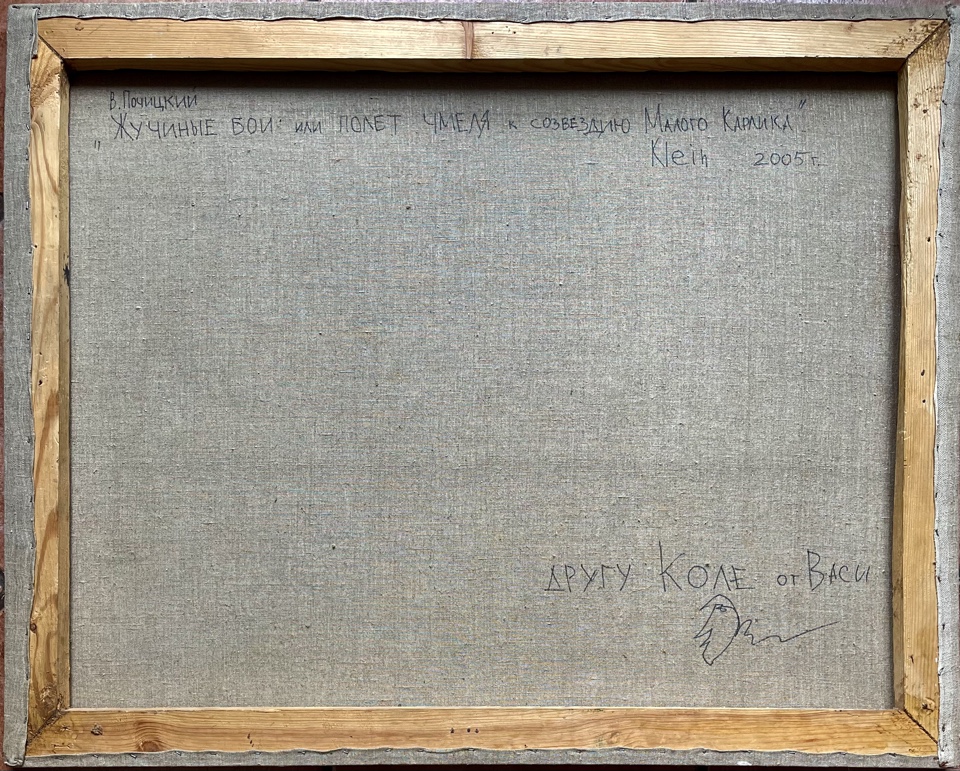 В. Почицкий
"Жучиные бои: или полет чмеля к созвездию Малого Карлика"
Klein 2005 г.
другу Коле от Васи